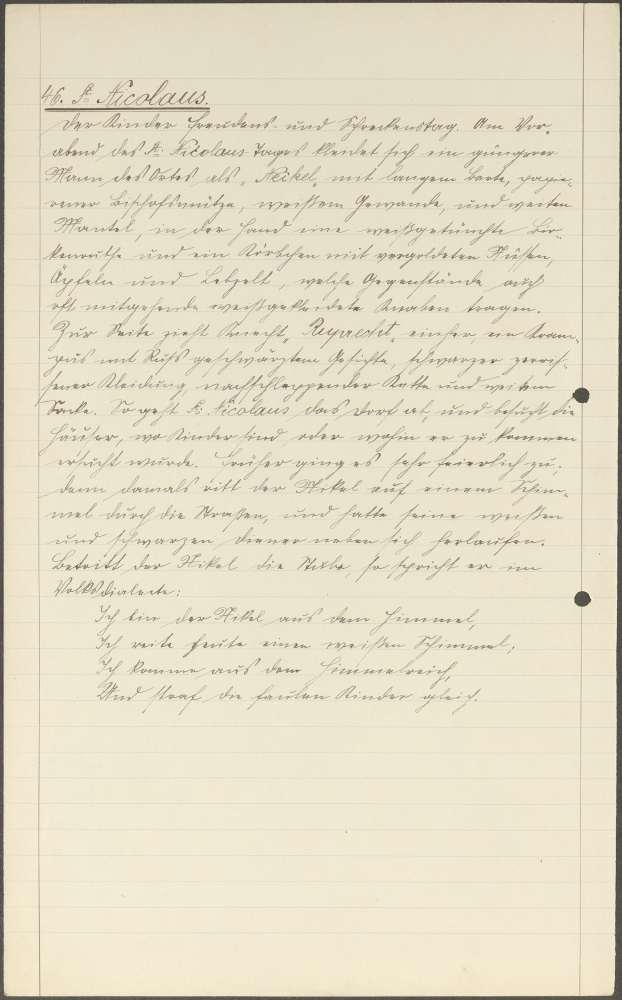 46. St. Nicolaus.
Der Kinder Freudens- und Schreckenstag. Am Vor-
abend des St. Nicolaus Tages kleidet sich ein jüngerer
Mann des Ortes als „Nikel" mit langem Barte, papie-
rener Bischofsmütze, weissem Gewande, und weiten
Mantel, in der Hand eine weißgetünchte Bir-
kenruthe und ein Körbchen mit vergoldeten Nüssen,
Äpfeln und Lebzelt, welche Gegenstände auch
oft mitgehende weißgekleidete Knaben tragen.
Zur Seite zieht Knecht „Ruprecht" einher, ein Kram-
pus mit Russ geschwärztem Gesichte, schwarzer zerris-
sener Kleidung, nachschleppender Kette und weitem
Sacke. So geht St. Nicolaus das Dorf ab, und besucht die
Häuser, wo Kinder sind, oder wohin er zu kommen
ersucht wurde. Früher ging es sehr feierlich zu;
denn damals ritt der Nikel auf einem Schim-
mel durch die Strassen, und hatte seine weissen
und schwarzen Diener neben sich herlaufen.
Betritt der Nikel die Stube, so spricht er im
Volksdialecte:
Ich bin der Nikel aus dem Himmel,
Ich reite heute einen weissen Schimmel;
Ich komme aus dem Himmelreich,
Und straf die faulen Kinder gleich.